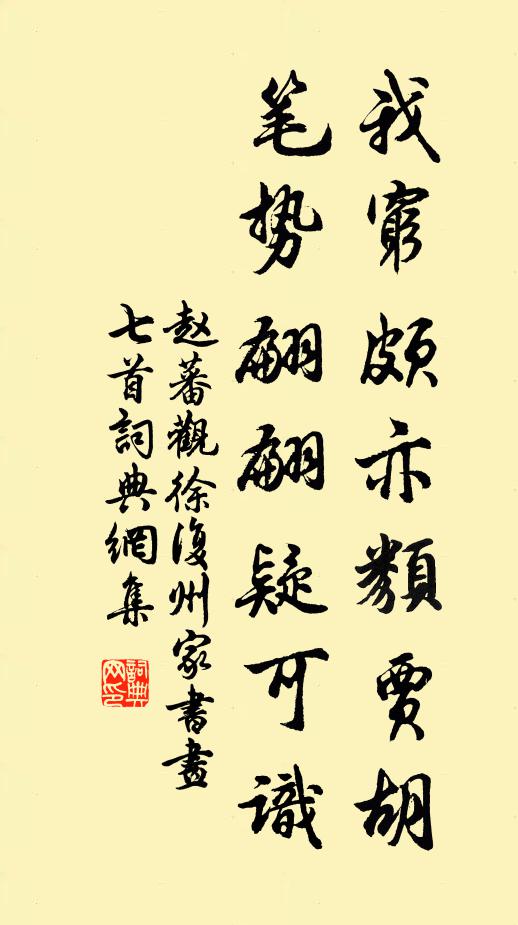 我窮頗亦類賈胡
笔势翩翩疑可識
赵蕃觀徐復州家書畫
七首詞典網集
詞典网印